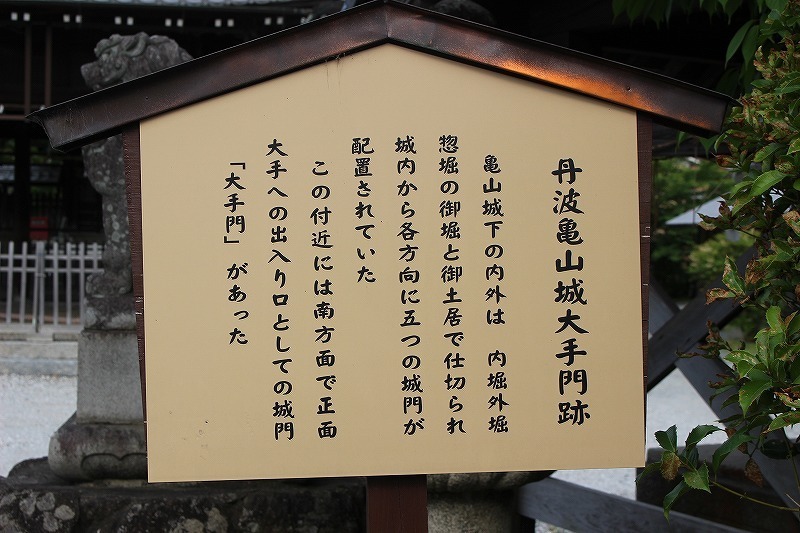 丹波亀山城大手門跡
亀山城下の内外は　内堀外堀
惣堀の御堀と御土居で仕切られ
城内から各方向に五つの城門が
配置されていた
この付近には南方面で正面
大手への出入り口としての城門
「大手門」があった